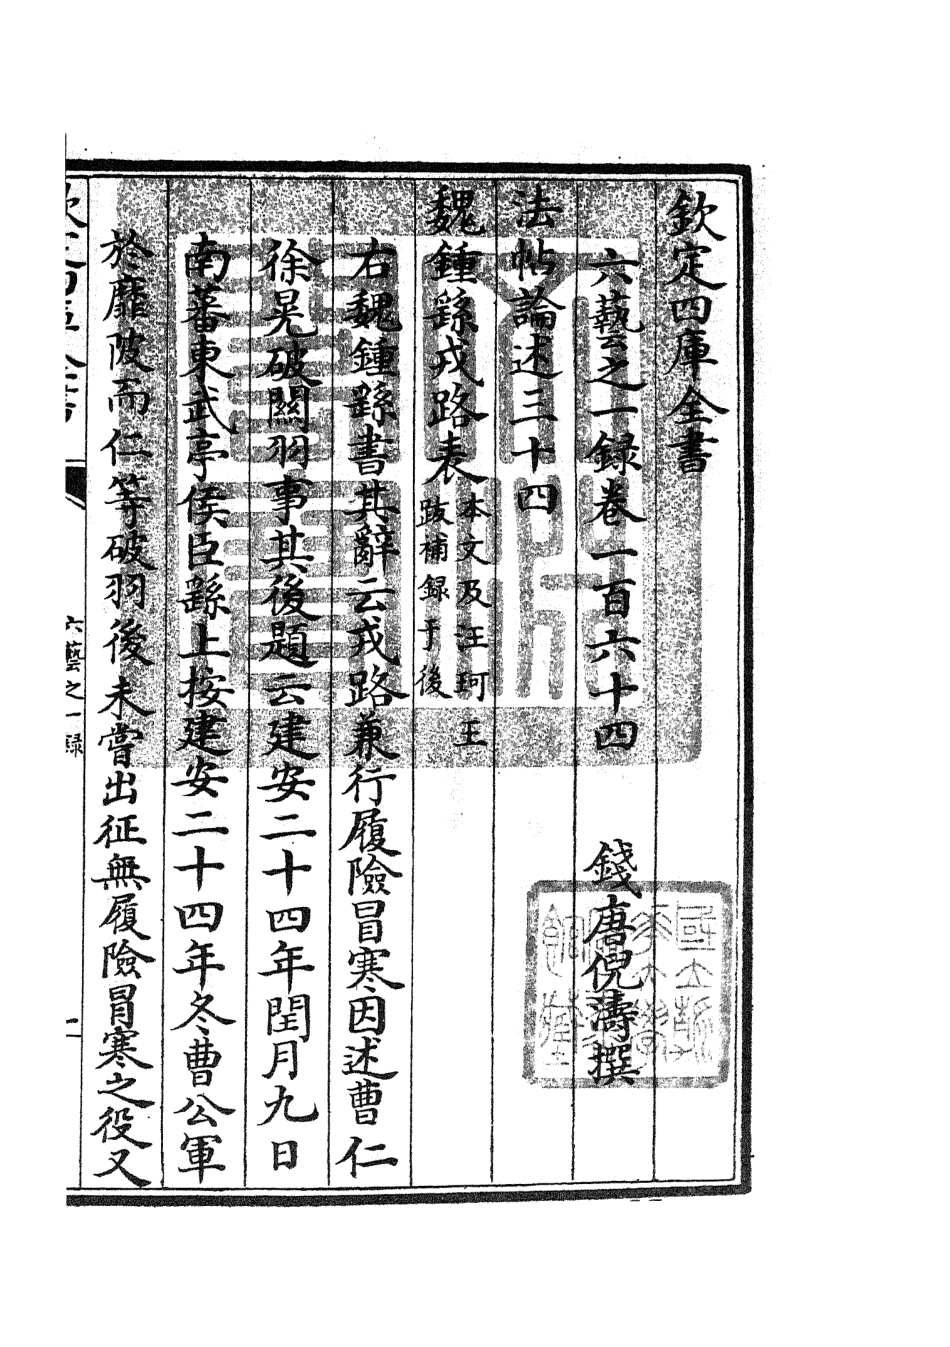 欽定四庫全書
六藝之一録卷一百六十四
錢唐倪濤撰
法帖論述三十四
魏鍾繇戎路表
本文及汪珂玉
跋補録于後
右魏鍾繇書其辭云戎路兼行履險冒寒因述曹仁
徐晃破關羽事其後題云建安二十四年閏月九日
南蕃東武亭侯臣繇上按建安二十四年冬曹公軍
於靡陂而仁等破羽後未嘗出征無履險冒寒之役又
六藝之一録